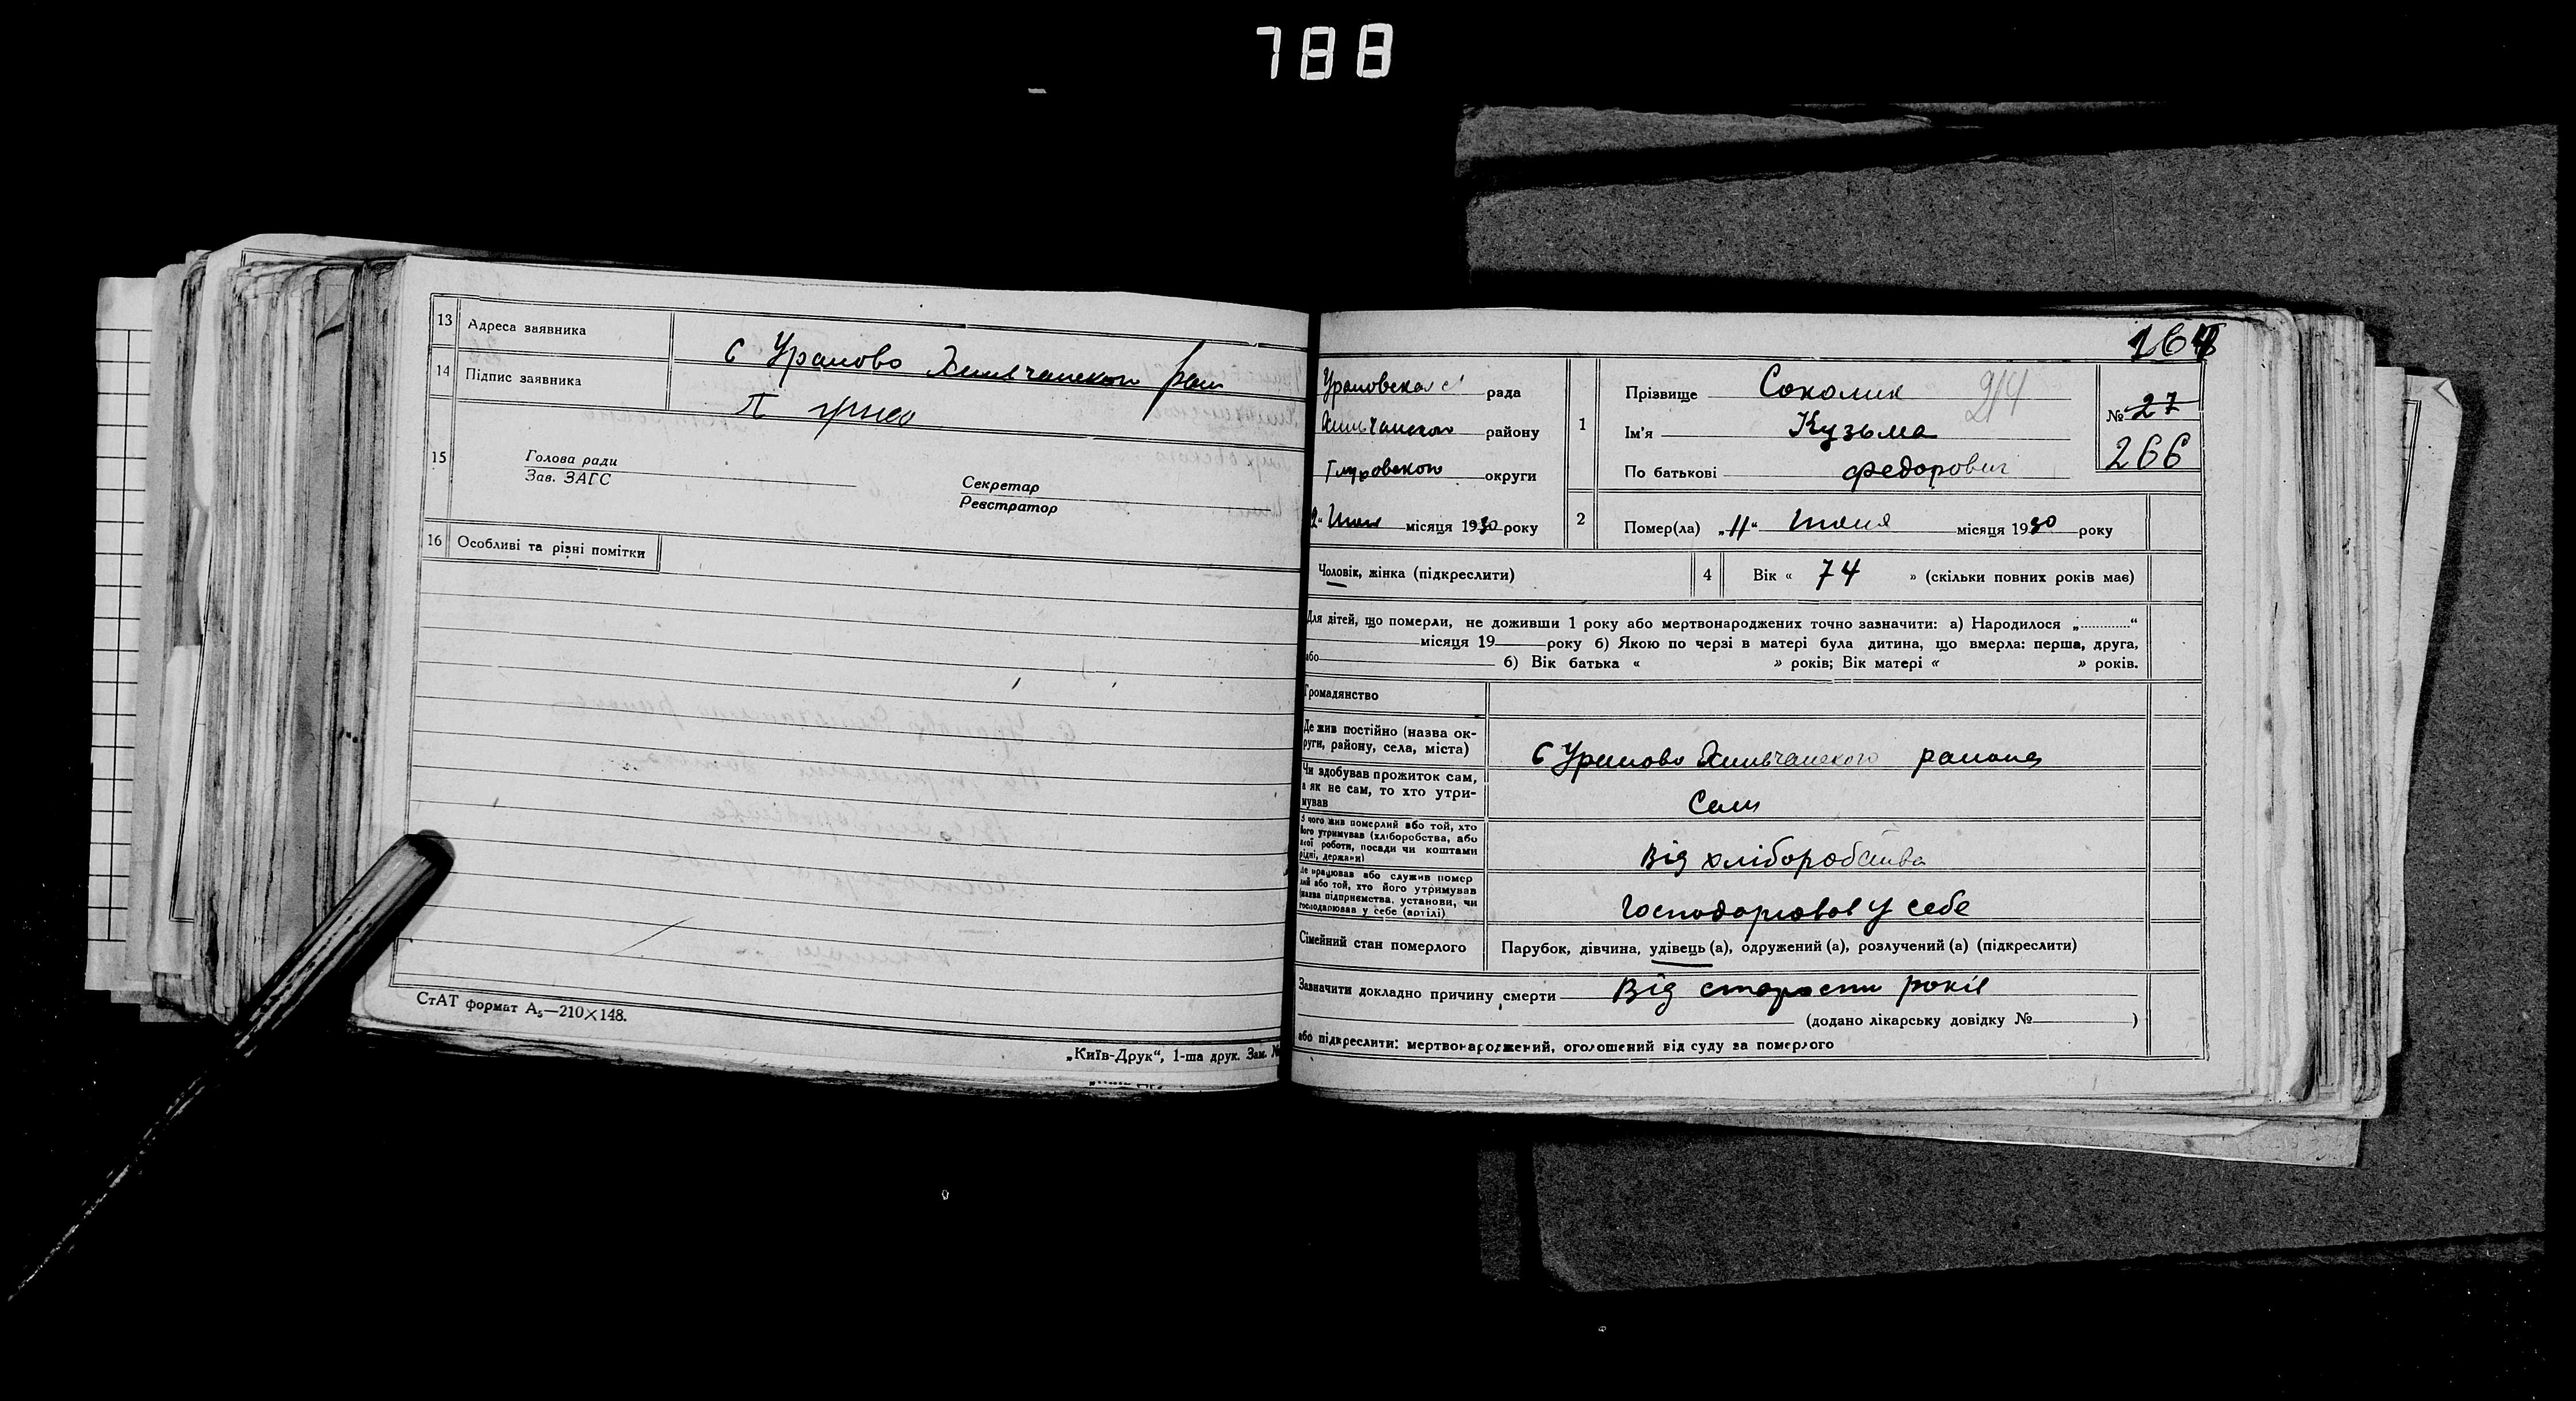 788
13 Адреса заявника с Урамово Хильчанского рай
14 Підпис заявника
15 Голова ради
Зав. ЗАГС
Секретар
Реєстратор
16 Особливі та різні помітки
СтАТ формат А₅—210×148.
„Київ-Друк“, 1-ша друк. Зам. №
рада
району
Глуховского округи
місяця 1930 року
1 Прізвище Соколик 214
Ім'я Кузьма
По батькові Федорович
№ 27
266
2 Помер(ла) „11“ Июня місяця 1930 року
Чоловік, жінка (підкреслити)
4 Вік « 74 » (скільки повних років має)
Для дітей, що померли, не доживши 1 року або мертвонароджених точно зазначити: а) Народилося „............“
місяця 19 року б) Якою по черзі в матері була дитина, що вмерла: перша, друга,
або б) Вік батька « » років; Вік матері « » років.
Громадянство
Де жив постійно (назва ок-
руги, району, села, міста)
с Урамово Хильчанского района
Чи здобував прожиток сам,
а як не сам, то хто утри-
мував
Сам
З чого жив померлий або той, хто
його утримував (хліборобства, або
якої роботи, посади чи коштами
рідні, держави)
Від хліборобства
Де працював або служив помер
лий або той, хто його утримував
(назва підприємства, установи, чи
господарював у себе (артілі)
Господарював у себе
Сімейний стан померлого
Парубок, дівчина, удівець (а), одружений (а), розлучений (а) (підкреслити)
Зазначити докладно причину смерти Від старости років
(додано лікарську довідку № )
або підкреслити: мертвонароджений, оголошений від суду за померлого